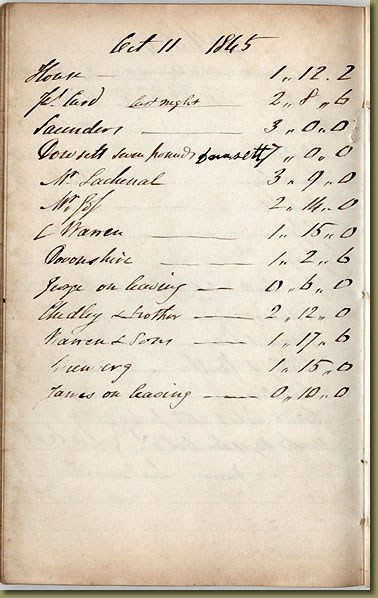 Oct 11 1845
House — 1,, 12. 2
Js. Card last night 2,, 8 ,, 6
Saunders — 3 ,, 0 ,, 0
Dowsett seven pounds Dowsett 7 ,, 0 ,, 0
Mr Lachenal 3 ,, 9 ,, 0
Mr 2 ,, 14 ,, 0
C Warren — 1 ,, 15 ,, 0
Devonshire — 1 ,, 2 ,, 6
George on leaving — 0 ,, 6 ,, 0
Chidley & brother — 2 ,, 12 ,, 0
Warren & Sons — 1 ,, 17 ,, 6
1 ,, 15 ,, 0
James on leaving — 0 ,, 10 ,, 0